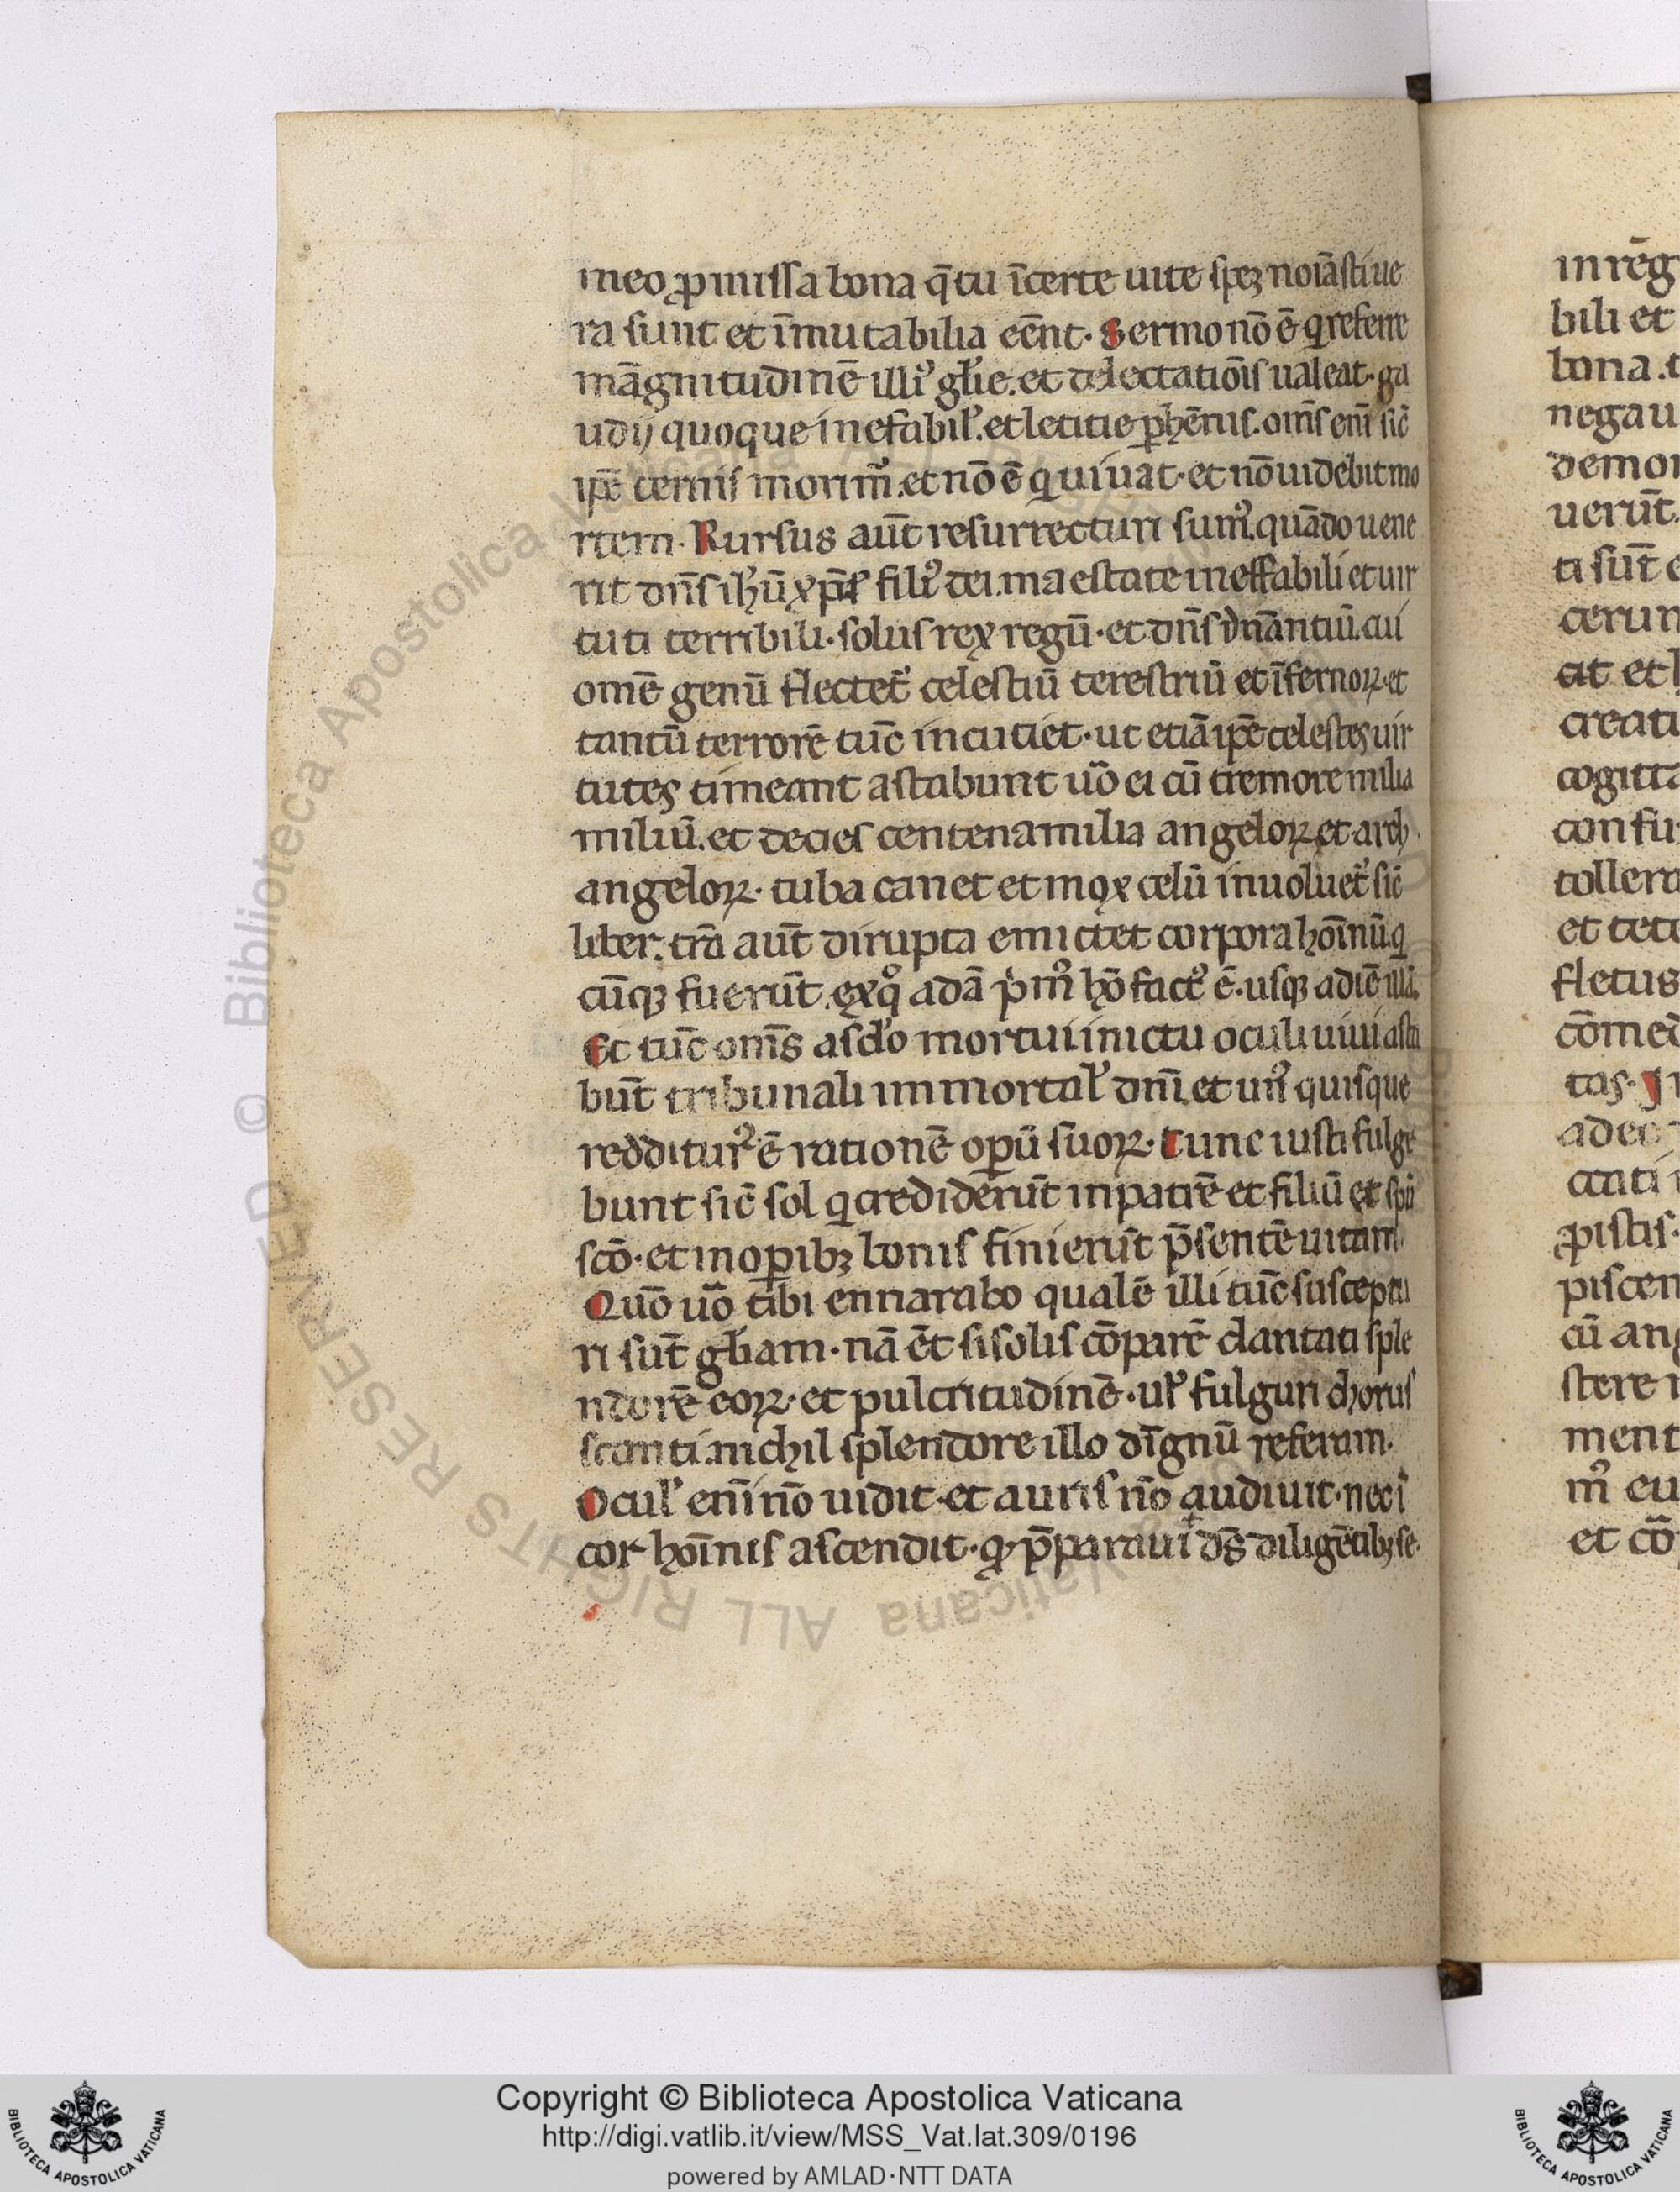 meo ꝓmissa bona q̄ tu īcerte uite speꝫ noīasti ue
ra sunt et īmutabilia eēnt. Sermo nō ē q referre
māgnitudinē illiꝰ gl̓ie. et delectatiōis ualeat. ga
udij quoque inefabil̓. et letitie ꝑhēnis. om̄s eni̅ sic̄
ip̄e cernis morim̓. et nō ē qui uiuat. et nō uidebit mo
rtem. Rursus aūt resurrecturi sumꝰ. quādo uene
rit dn̄s ih̓ū xp̄s filiꝰ dei. maestate ineffabili et uir
tuti terribili. solus rex regū. et dn̄s dn̄antiū. cui
omē genū flectet̓ celestiū terestriū et īfernoꝝ. et
tantū terrorē tūc incutiet. ut etiā ip̄e celestes uir
tutes timeant astabunt uō ei cū tremore milia
miliū. et decies centena milia angeloꝝ et arch
angeloꝝ. tuba canet et mox celū inuoluet̓ sic̄
liber. tr̄a aūt dirupta emictet corpora hoīnū. q
cūqꝫ fuerūt. ex qͦ adā pͥmꝰ hō factꝰ ē. usqꝫ ad iē illā.
Et tūc om̄s a sc̄lo mortui in ictu oculi uiui asta
būt tribunali immortal̓ dn̄i et unꝰ quisque
redditurꝰ ē rationē oꝑū suoꝝ. Tunc iusti fulge
bunt sic̄ sol q crediderūt in patrē et filiū et spū
scō. et in oꝑibꝫ bonis finierūt p̄sentē uitam
Quō uō tibi ennarabo qualē illi tūc susceptu
ri sūt gl̓iam. nā ēt si solis cōparē claritati sple
ndorē eoꝝ. et pulcritudinē. ul̓ fulguri chorus
scanti. nichil splendore illo dīgnū referam.
Oculꝰ enī nō uidit. et auris nō audiuit. nec ī
cor hoīnis ascendit. q p̄parauit ds̄ diligētibꝫ se.
in rēg
bili et
bona. t
negau
demon
uerūt.
ti sūt e
cerun
at et l
creatu
cogitta
confu
tollera
et tete
fletus
cōmed
tas. I
adeo
cruti
ꝓistis.
piscen
cū ang
stere
ment
mꝰ eu
et cō
© Biblioteca Apostolica Vaticana ALL RIGHTS RESERVED
Copyright © Biblioteca Apostolica Vaticana
http://digi.vatlib.it/view/MSS_Vat.lat.309/0196
powered by AMLAD·NTT DATA
BIBLIOTECA APOSTOLICA VATICANA
BIBLIOTECA APOSTOLICA VATICANA